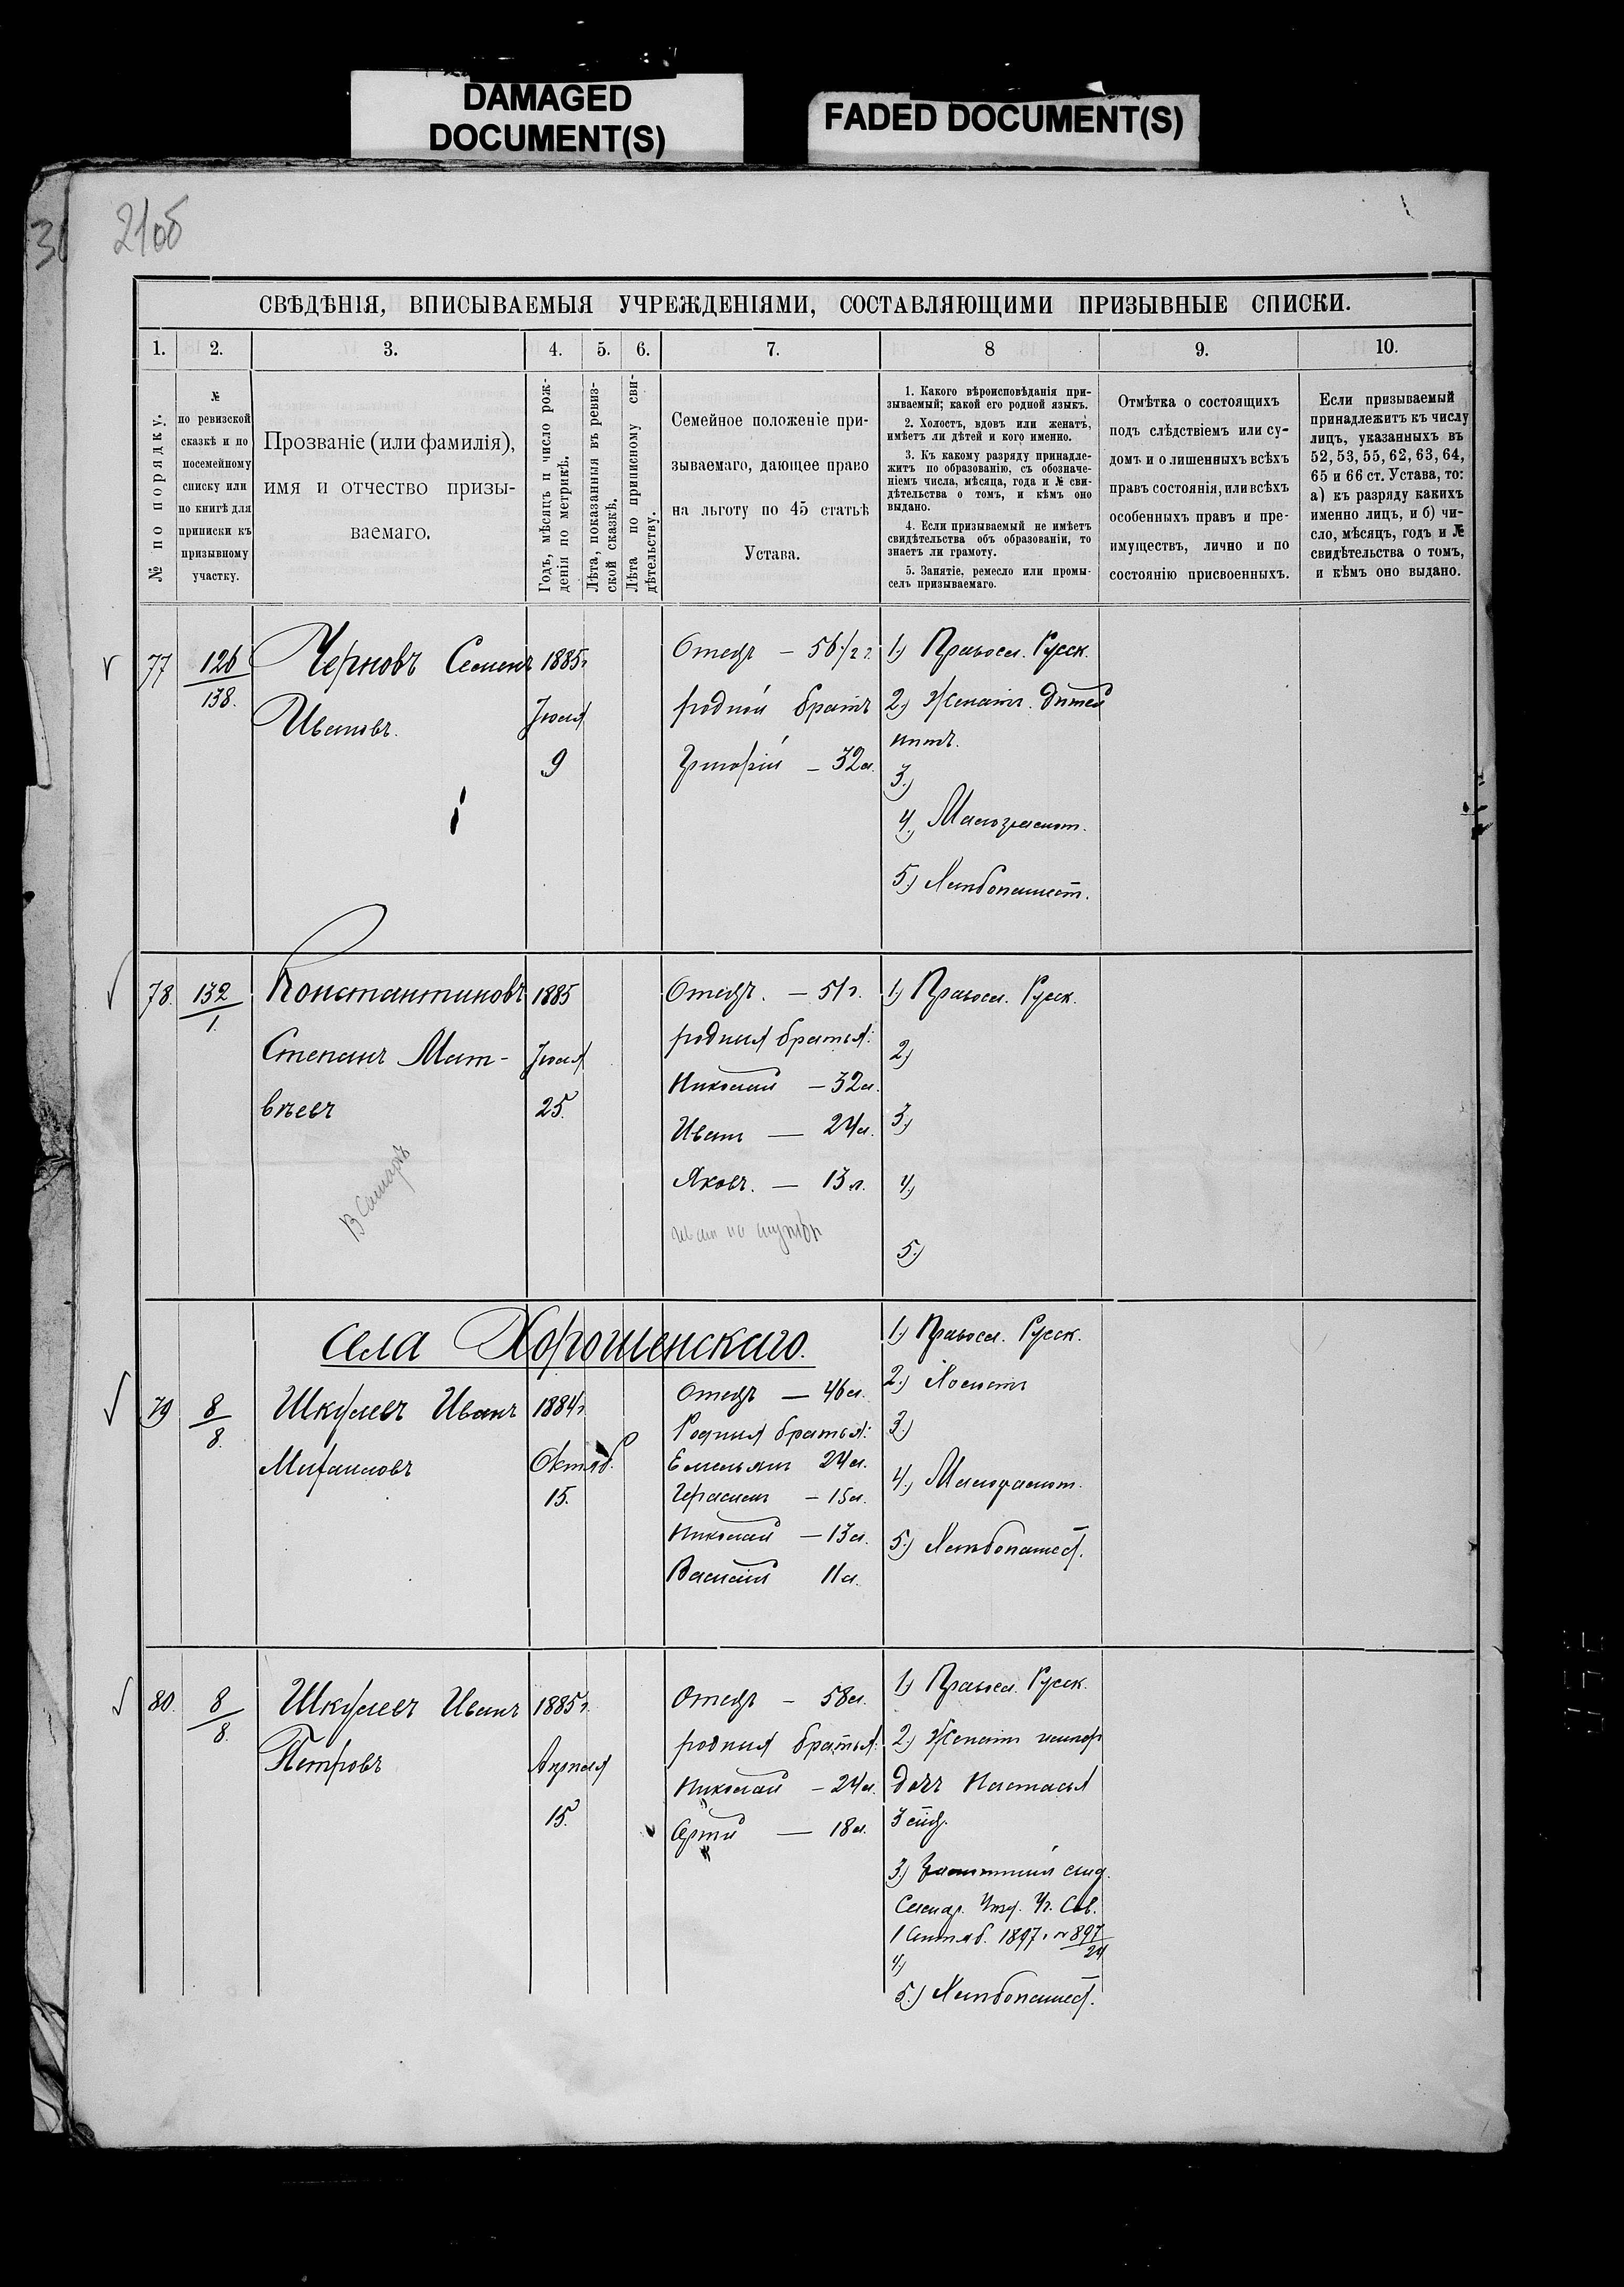 DAMAGED
DOCUMENT(S)
FADED DOCUMENT(S)
21об
СВѢДѢНІЯ, ВПИСЫВАЕМЫЯ УЧРЕЖДЕНІЯМИ, СОСТАВЛЯЮЩИМИ ПРИЗЫВНЫЕ СПИСКИ.
1. 2. 3. 4. 5. 6. 7. 8 9. 10.
№ по порядку.
№
по ревизской
сказкѣ и по
посемейному
списку или
по книгѣ для
приписки къ
призывному
участку.
Прозваніе (или фамилія),
имя и отчество призы-
ваемаго.
Годъ, мѣсяцъ и число рож-
денія по метрикѣ.
Лѣта, показанныя въ ревиз-
ской сказкѣ.
Лѣта по приписному сви-
дѣтельству.
Семейное положеніе при-
зываемаго, дающее право
на льготу по 45 статьѣ
Устава.
1. Какого вѣроисповѣданія при-
зываемый; какой его родной языкъ.
2. Холостъ, вдовъ или женатъ,
имѣетъ ли дѣтей и кого именно.
3. Къ какому разряду принадле-
житъ по образованію, съ обозначе-
ніемъ числа, мѣсяца, года и № сви-
дѣтельства о томъ, и кѣмъ оно
выдано.
4. Если призываемый не имѣетъ
свидѣтельства объ образованіи, то
знаетъ ли грамоту.
5. Занятіе, ремесло или промы-
селъ призываемаго.
Отмѣтка о состоящихъ
подъ слѣдствіемъ или су-
домъ и о лишенныхъ всѣхъ
правъ состоянія, или всѣхъ
особенныхъ правъ и пре-
имуществъ, лично и по
состоянію присвоенныхъ.
Если призываемый
принадлежитъ къ числу
лицъ, указанныхъ въ
52, 53, 55, 62, 63, 64,
65 и 66 ст. Устава, то:
а) къ разряду какихъ
именно лицъ, и б) чи-
сло, мѣсяцъ, годъ и №
свидѣтельства о томъ,
и кѣмъ оно выдано.
77
126
138.
Черновъ Семенъ
Ивановъ.
1885г
Іюля
9
Отецъ — 56
родной братъ
Григорій — 32л.
1) Правосл. Русск.
2) Женатъ. дѣтей
нѣтъ.
3)
4) Малограмот.
5) Хлѣбопашест.
78.
132
1.
Константиновъ
Степанъ Мат-
вѣевъ
В Самарѣ
1885
Іюля
25.
Отецъ. — 51г.
родныя братья:
Николай — 32л.
Иванъ — 24л.
Яковъ. — 13 л.
1) Правосл. Русск.
2)
3)
4)
5)
Села Хорошенскаго.
79
8
8.
Шкулевъ Иванъ
Михаиловъ
1884г
Октяб.
15.
Отецъ — 46л.
Родныя братья:
Емельянъ 24л.
Герасимъ — 15л.
Николай — 13л.
Василій 11л.
1) Правосл. Русск.
2.) Холостъ
3.)
4.) Малограмот.
5.) Хлѣбопашест.
80.
8
8.
Шкулевъ Иванъ
Петровъ
1885г.
Апрѣля
15.
Отецъ — 58л.
родныя братья:
Николай — 24л.
— 18л.
1) Правосл. Русск.
2) Женатъ
дочь Настасья
3
3)
1 Сентяб. 1897г № 897
24
4)
5.) Хлѣбопашест.